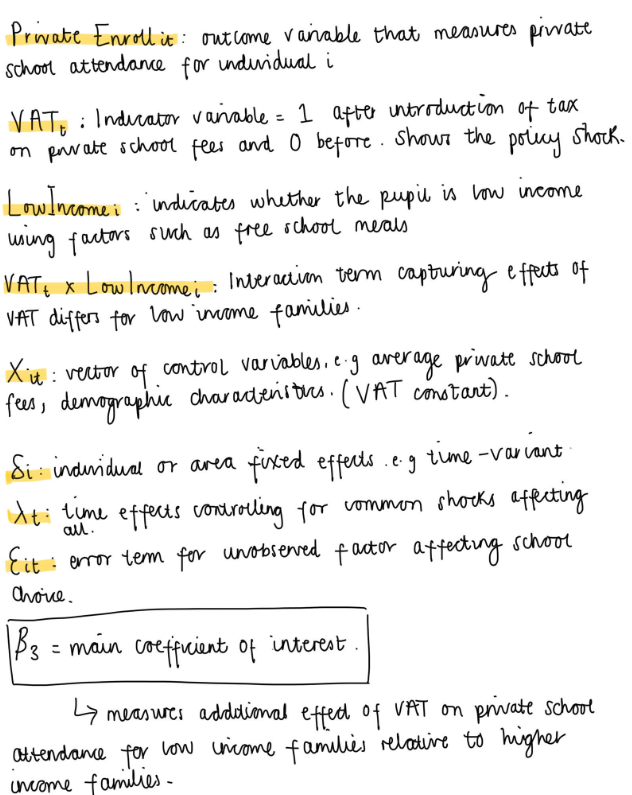 Private Enroll it : outcome variable that measures private
school attendance for individual i
VATt : Indicator variable = 1 after introduction of tax
on private school fees and 0 before. Shows the policy shock.
LowIncomei : indicates whether the pupil is low income
using factors such as free school meals
VATt x LowIncomei : Interaction term capturing effects of
VAT differs for low income families.
Xit : vector of control variables, e.g average private school
fees, demographic characteristics. (VAT constant).
δi : individual or area fixed effects e.g time-variant
λt : time effects controlling for common shocks affecting
all.
εit : error term for unobserved factor affecting school
choice.
β3 = main coefficient of interest.
↳ measures additional effect of VAT on private school
attendance for low income families relative to higher
income families.